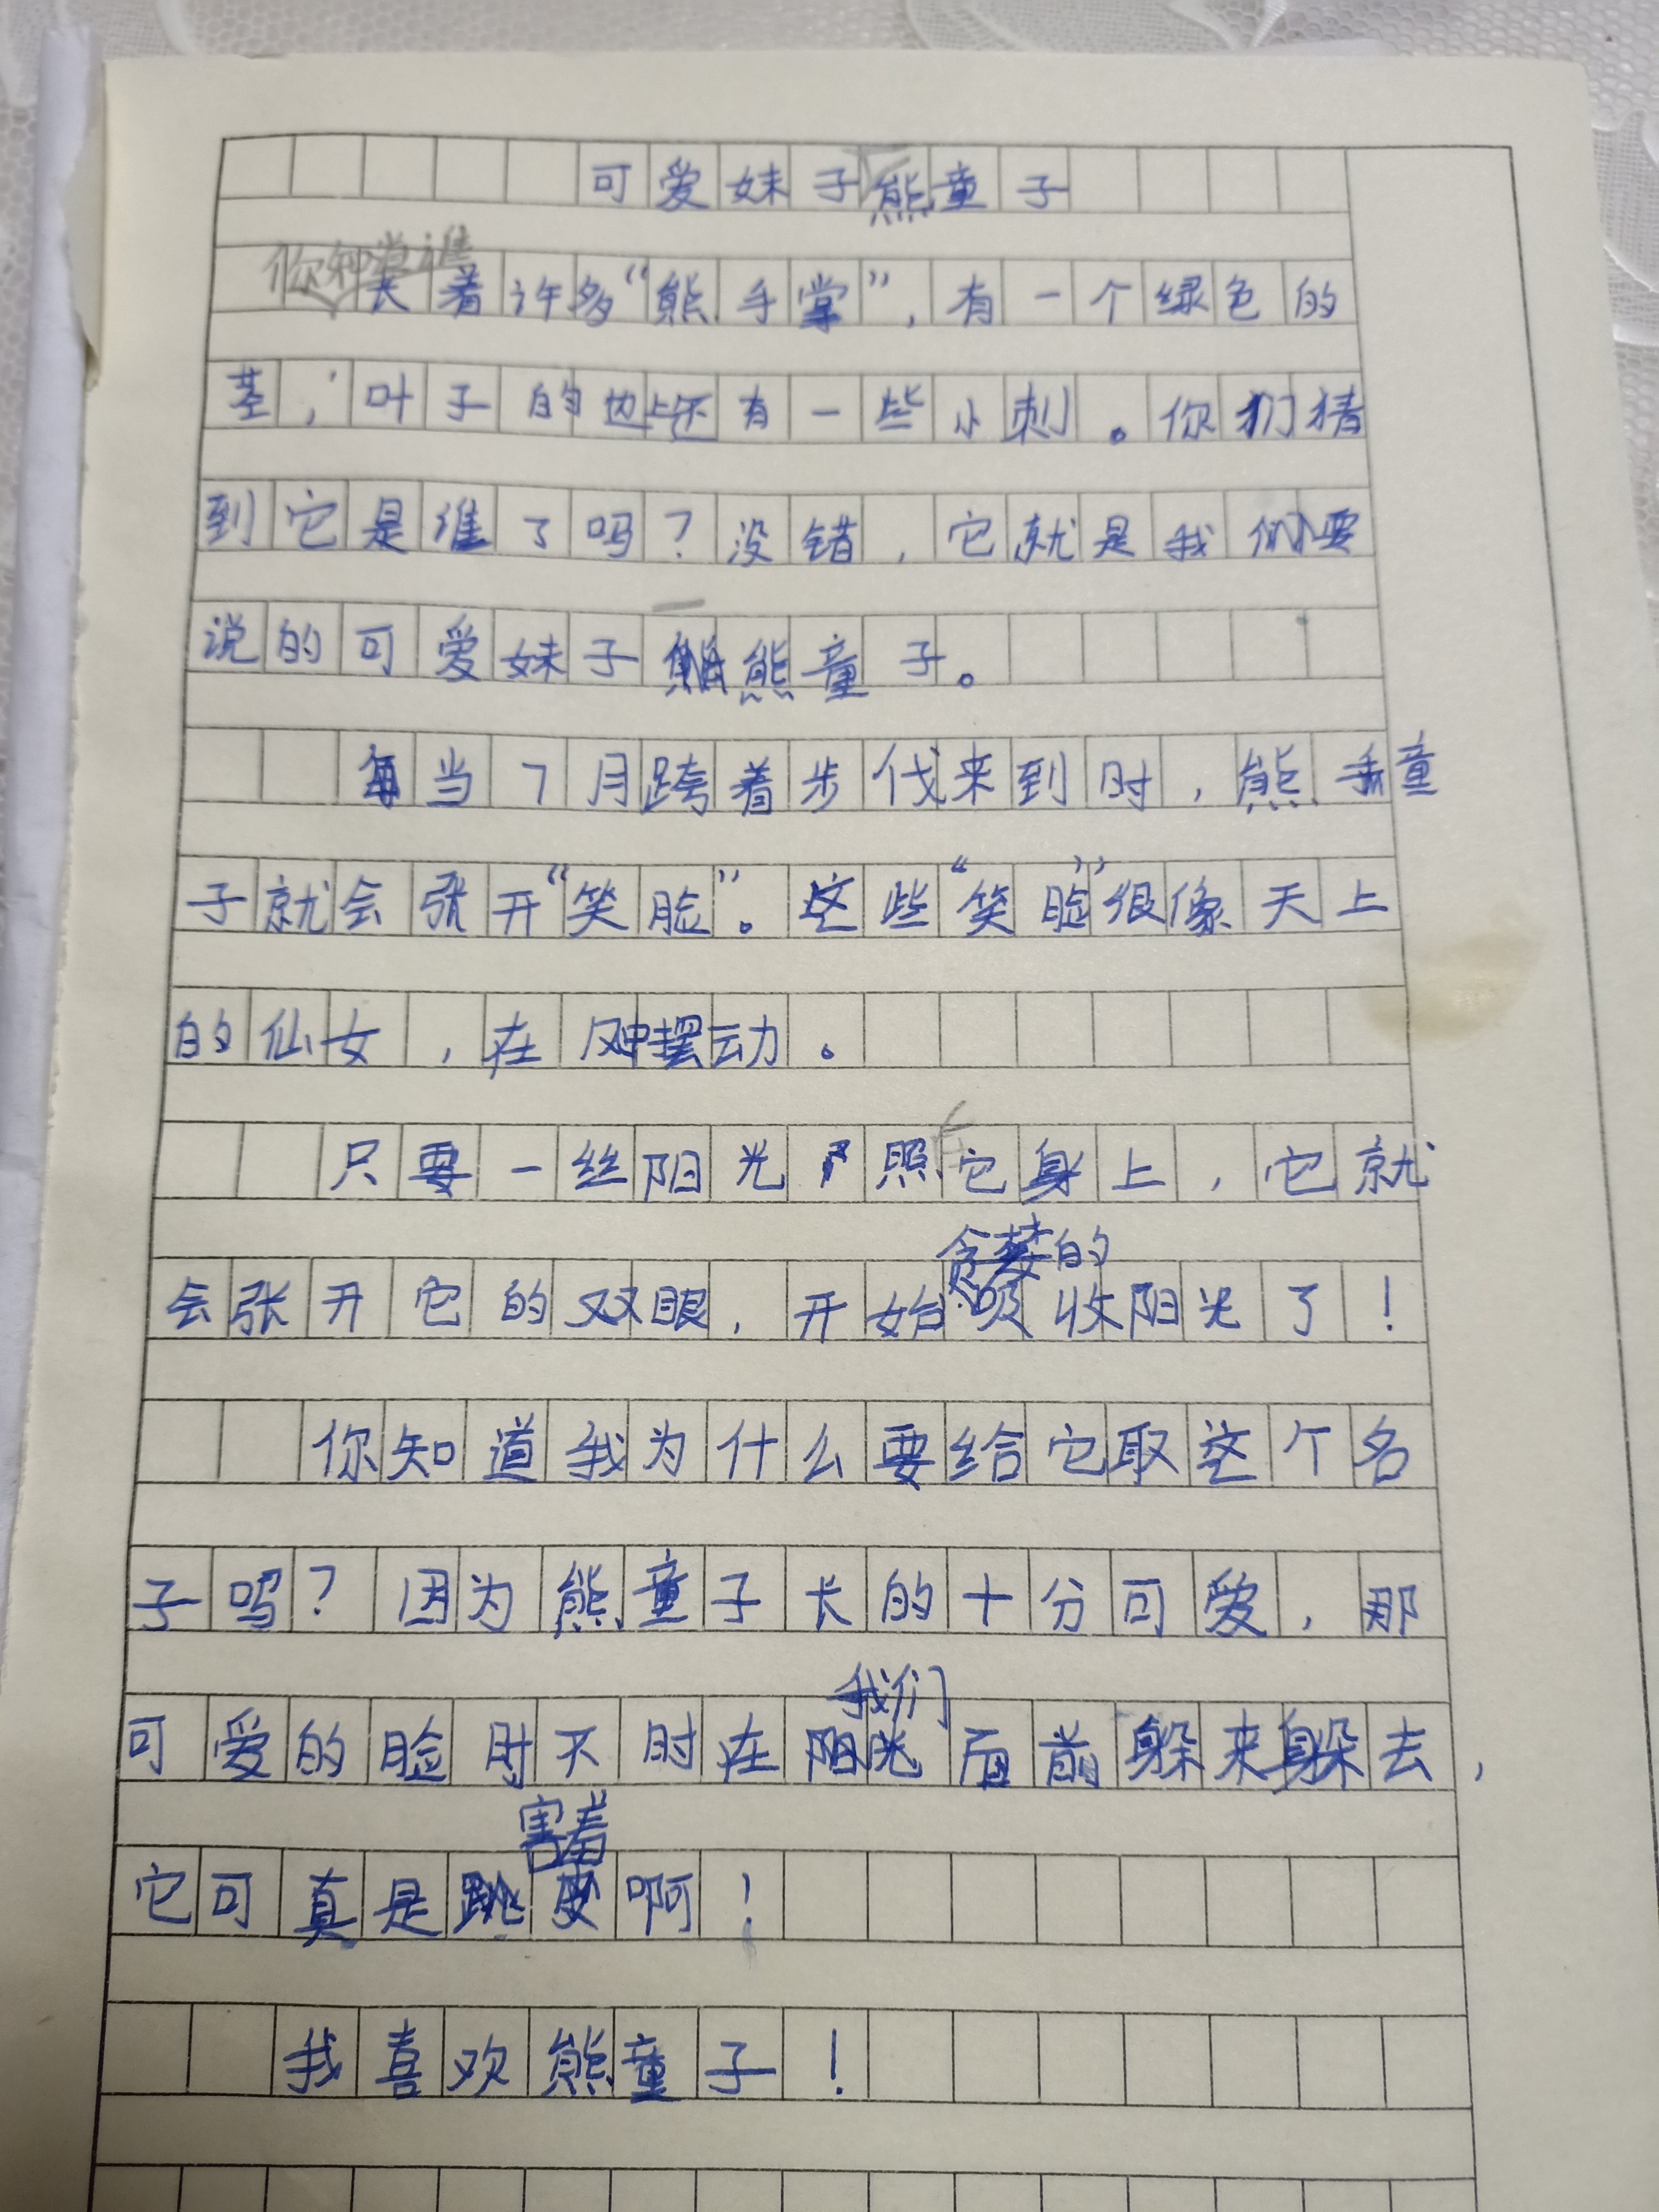 可爱妹子熊童子
你知道谁
长着许多“熊手掌”,有一个绿色的
茎,叶子的边上还有一些小刺。你们猜
到它是谁了吗?没错,它就是我们要
说的可爱妹子熊童子。
每当7月跨着步伐来到时,熊童
子就会张开“笑脸”。这些“笑脸”很像天上
的仙女,在风中摆动。
只要一丝阳光照它身上,它就
贪婪的
会张开它的双眼,开始吸收阳光了!
你知道我为什么要给它取这个名
子吗?因为熊童子长的十分可爱,那
我们
可爱的脸时不时在面前躲来躲去,
害羞
它可真是啊!
我喜欢熊童子!